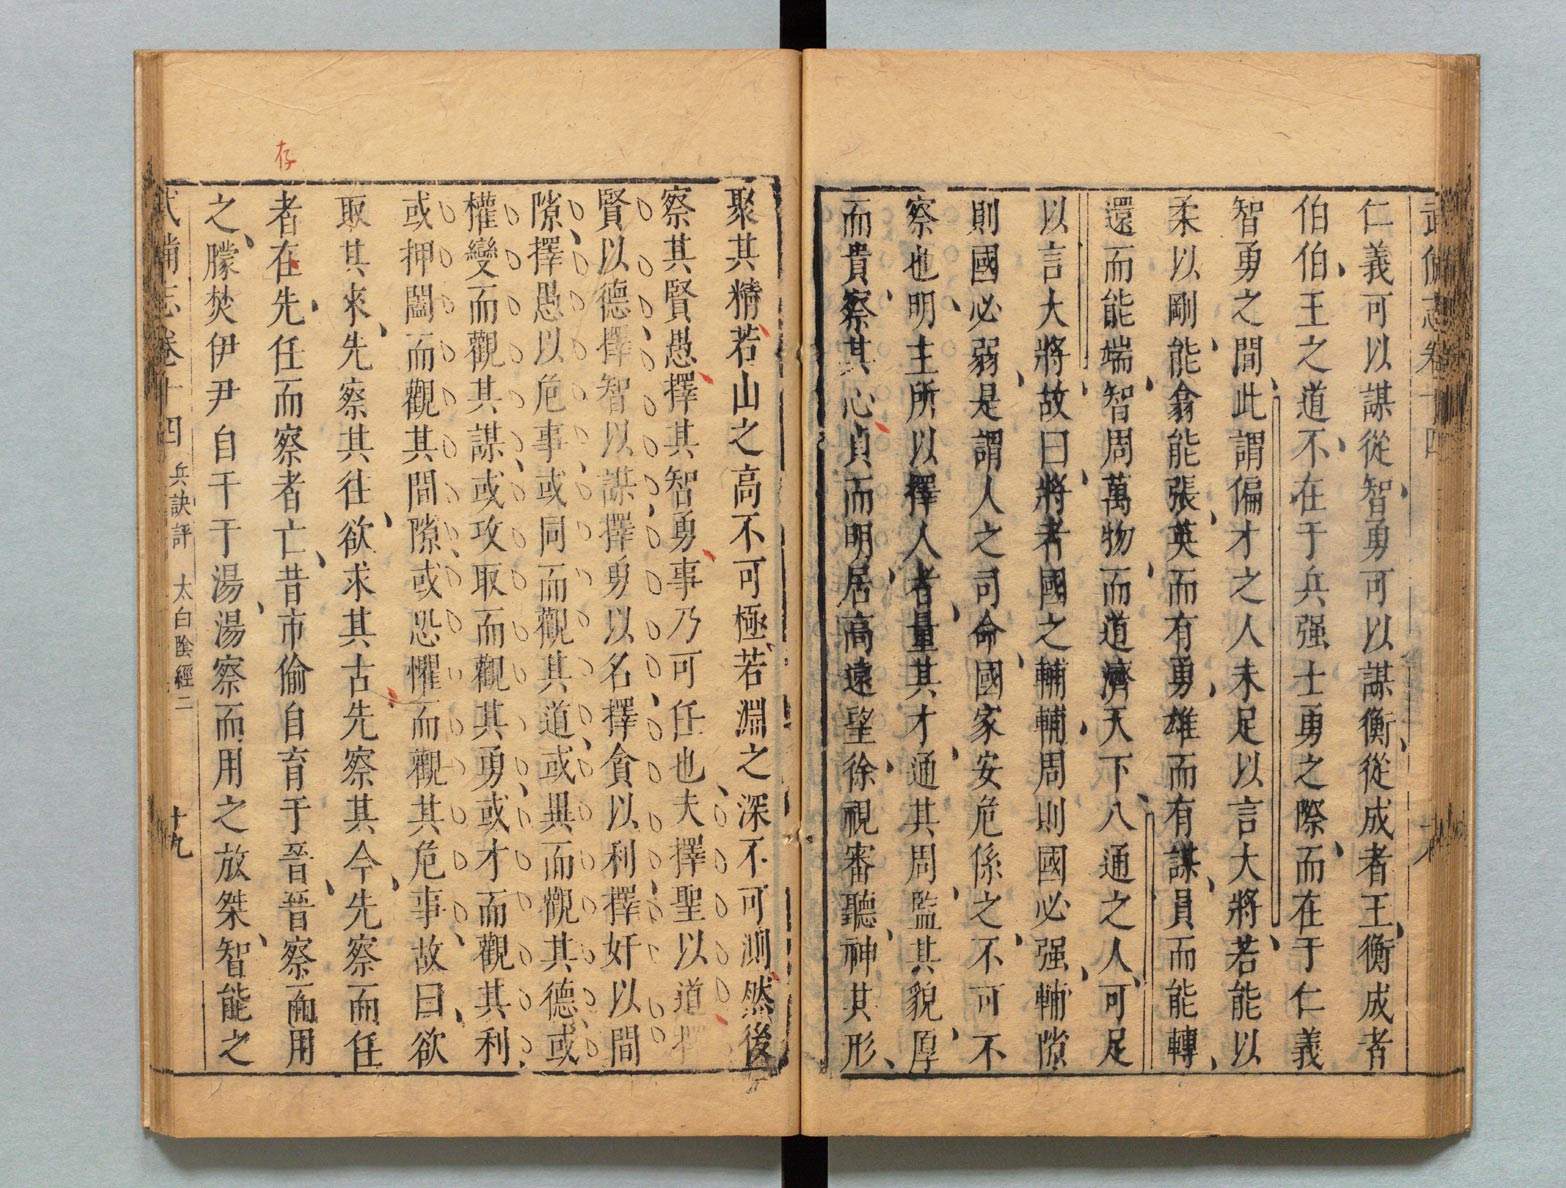 武備志卷十四
仁義可以謀從智勇可以謀衡從成者王衡成者
伯伯王之道不在于兵强士勇之際而在于仁義
智勇之間此謂偏才之人未足以言大將若能以
柔以剛能翕能張英而有勇雄而有謀員而能轉
還而能端智周萬物而道濟天下八通之人可足
以言大將故曰將者國之輔輔周則國必强輔隙
則國必弱是謂人之司命國家安危係之不可不
察也明主所以擇人者量其才通其周監其貌厚
而貴察其心貞而明居高遠望徐視審聽神其形
聚其精若山之高不可極若淵之深不可測然後
察其賢愚擇其智勇事乃可任也夫擇聖以道擇
賢以德擇智以謀擇勇以名擇貪以利擇奸以間
隙擇愚以危事或同而觀其道或異而觀其德或
權變而觀其謀或攻取而觀其勇或才而觀其利
或押闔而觀其間隙或恐懼而觀其危事故曰欲
取其來先察其往欲求其古先察其今先察而任
者在先任而察者亡昔市偷自育于晉晉察而用
之朦焚伊尹自干于湯湯察而用之放桀智能之
武備志卷十四 兵訣評 太白陰經二 十九
存